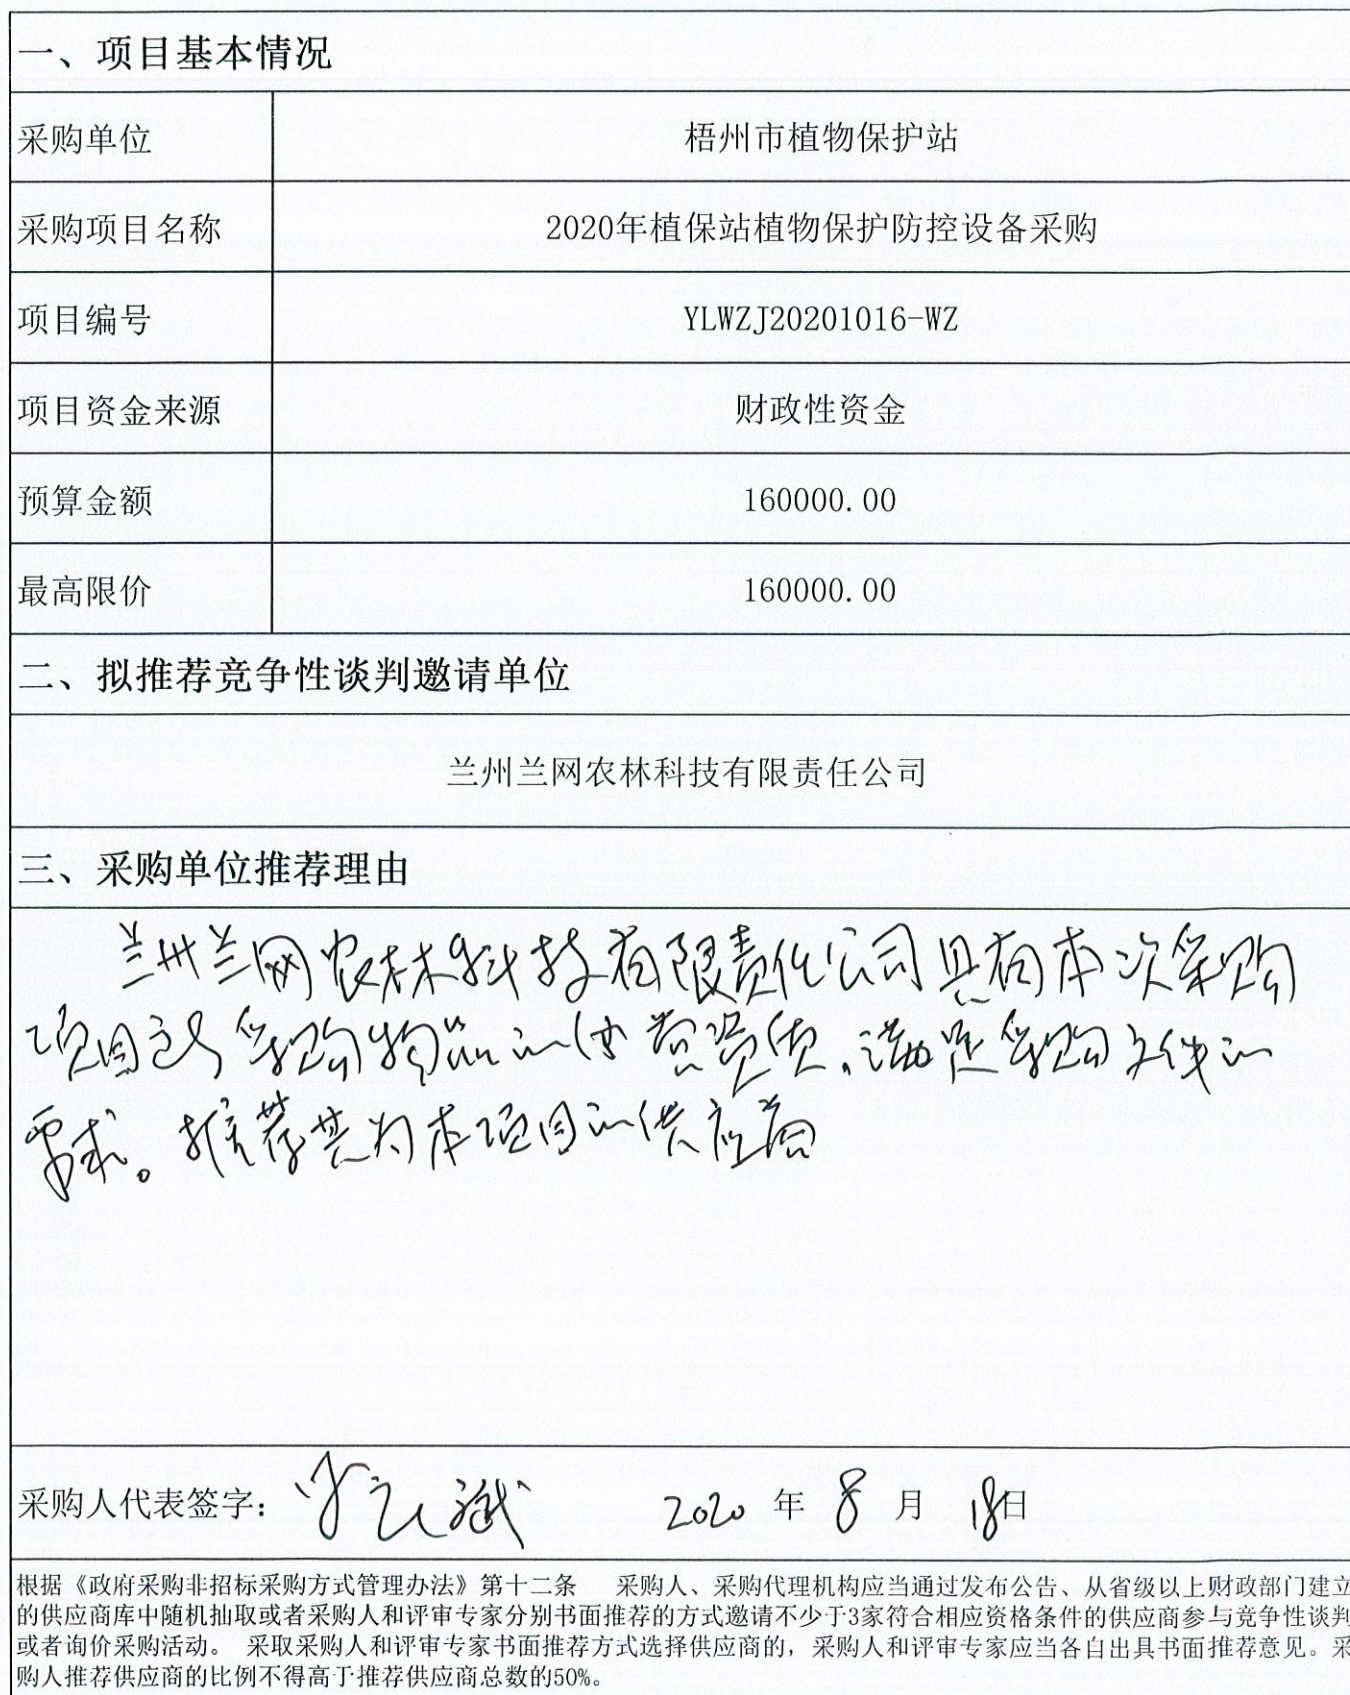 一、项目基本情况
采购单位 梧州市植物保护站
采购项目名称 2020年植保站植物保护防控设备采购
项目编号 YLWZJ20201016-WZ
项目资金来源 财政性资金
预算金额 160000.00
最高限价 160000.00
二、拟推荐竞争性谈判邀请单位
兰州兰网农林科技有限责任公司
三、采购单位推荐理由
兰州兰网农林科技有限责任公司具有本次采购
项目采购物品的经营资质,满足采购文件的
要求。推荐其为本项目的供应商
采购人代表签字: 2020 年 8 月 18日
根据《政府采购非招标采购方式管理办法》第十二条 采购人、采购代理机构应当通过发布公告、从省级以上财政部门建立
的供应商库中随机抽取或者采购人和评审专家分别书面推荐的方式邀请不少于3家符合相应资格条件的供应商参与竞争性谈判
或者询价采购活动。 采取采购人和评审专家书面推荐方式选择供应商的,采购人和评审专家应当各自出具书面推荐意见。采
购人推荐供应商的比例不得高于推荐供应商总数的50%。